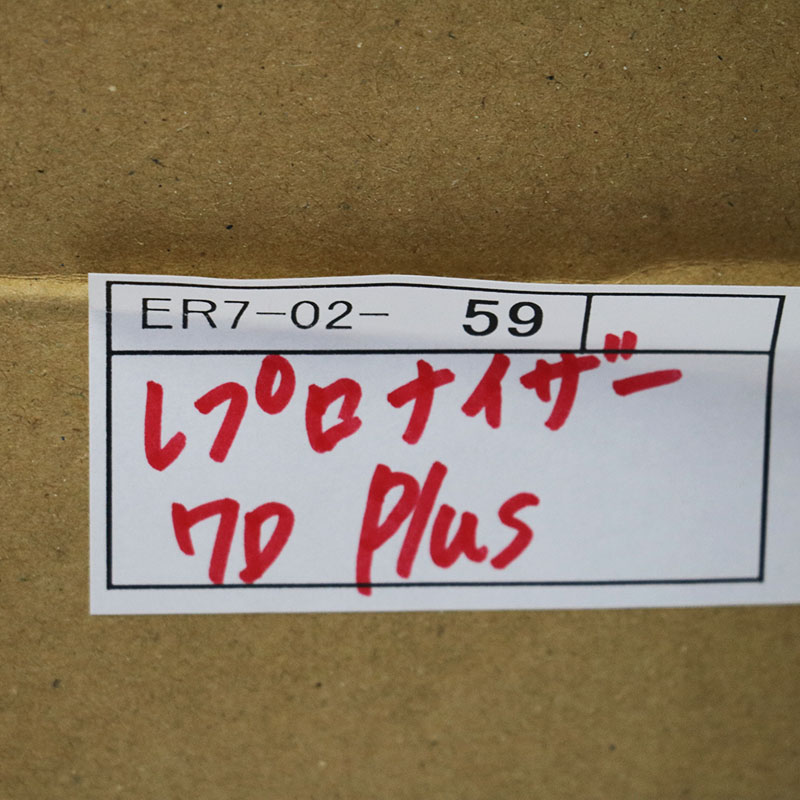 ER7-02- 59
レプロナイザー
7D Plus